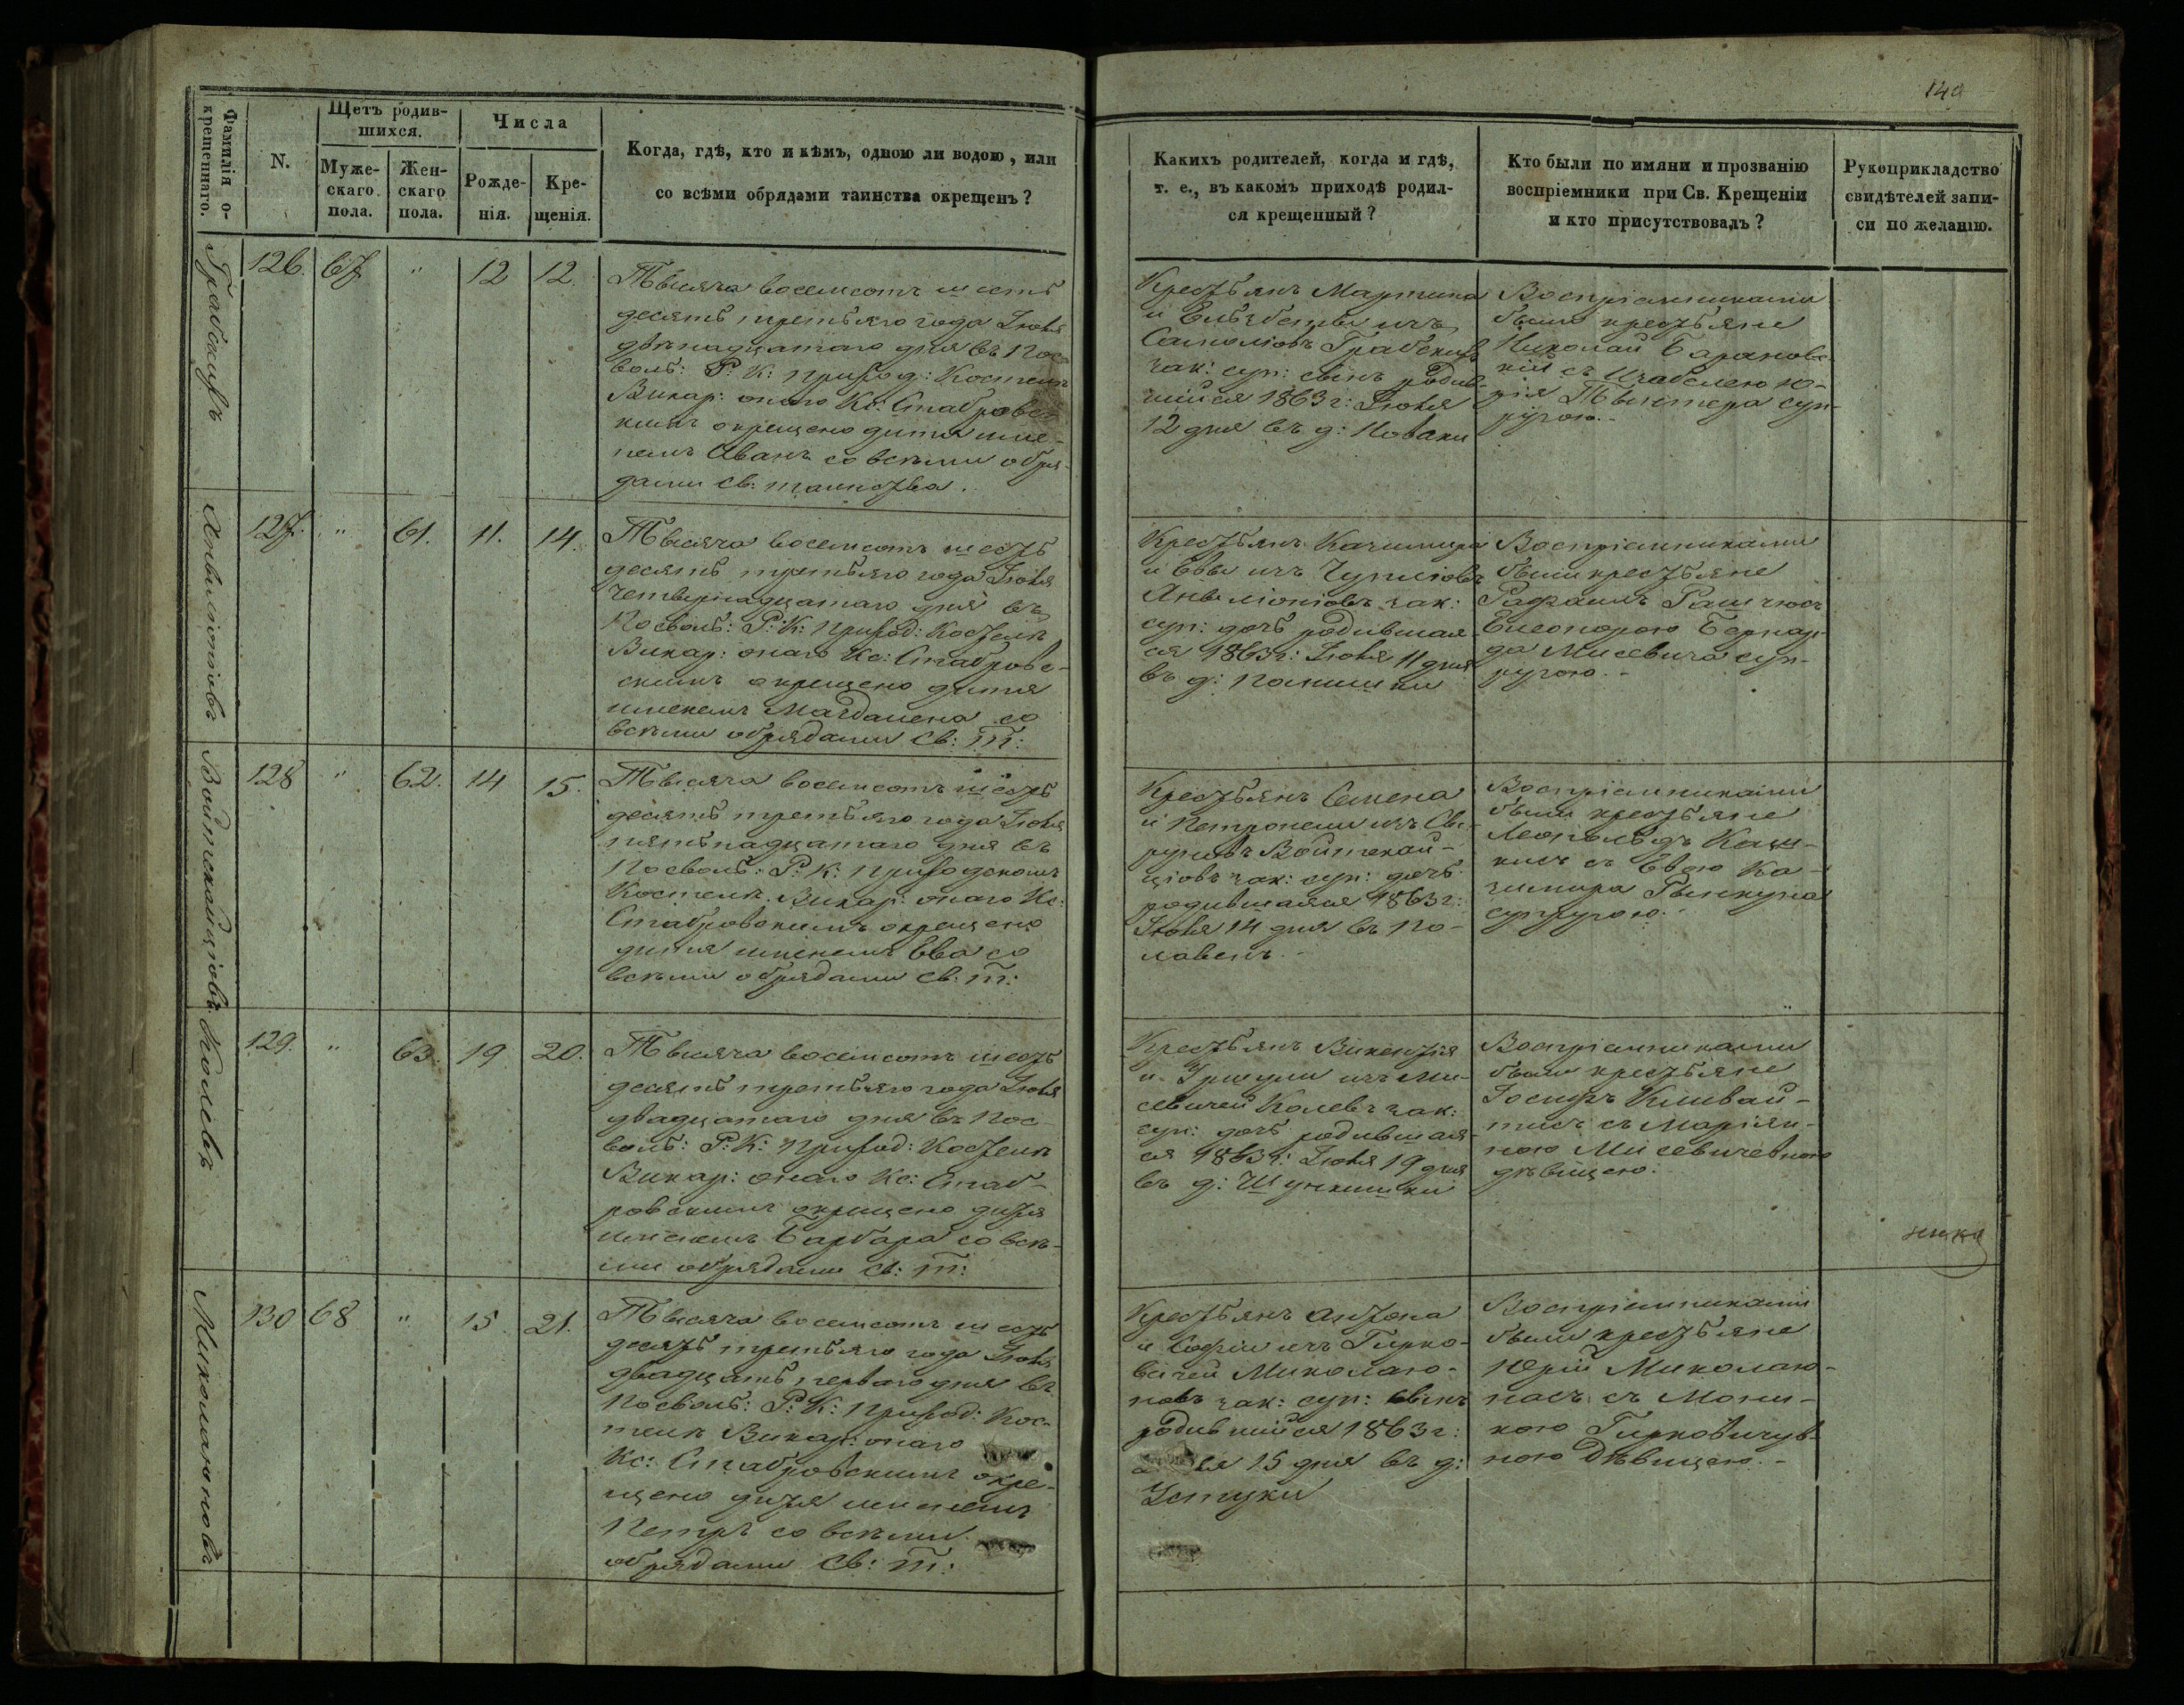 149
Фамилія о-
крещеннаго.
N.
Щетъ родив-
шихся.
Муже-
скаго
пола.
Жен-
скаго
пола.
Числа
Рожде-
нія.
Кре-
щенія.
Когда, гдѣ, кто и кѣмъ, одною ли водою, или
со всѣми обрядами таинства окрещенъ?
Какихъ родителей, когда и гдѣ,
т. е., въ какомъ приходѣ родил-
ся крещенный?
Кто были по имяни и прозванію
воспріемники при Св. Крещеніи
и кто присутствовалъ?
Рукоприкладство
свидѣтелей запи-
си по желанію.
Грабскихъ
126. 67 " 12 12.
Тысяча восемсотъ шесть
десятъ третьяго года Іюня
двѣнадцатаго дня въ Пос-
воль: Р: К: приход: Костелѣ
Викар: онаго Кс: Стабровс-
кимъ окрещено дитя име-
немъ Иванъ со всѣми обря-
дами св: таинства.
Крестьянъ Мартина
и Елѣсбеты изъ
Грабскихъ
зак: суп: сынъ родив-
шійся 1863 г: Іюня
12 дня въ д: Новаки
Воспріемниками
были крестьяне
Николай Барановс-
кій съ Изабелею Ю-
рія суп-
ругою.
127. " 61. 11. 14.
Тысяча восемсотъ шесть
десятъ третьяго года Іюня
четвернадцатаго дня въ
Посволь: Р: К: Приход: Костелѣ
Викар: онаго Кс: Стабровс-
скимъ окрещено дитя
именемъ Магдалена со
всѣми обрядами св: т:
Крестьянъ Казимира
и Евы изъ
зак:
суп: дочь родившая-
ся 1863 г: Іюня 11 дня
въ д:
Воспріемниками
были крестьяне
Рафаилъ
Елеонорою Бернар-
да Мисевича суп-
ругою. -
Войткайціовъ
128 " 62. 14 15.
Тысяча восемсотъ шесть
десятъ третьяго года Іюня
пятьнадцатаго дня въ
Посволь: Р: К: приходскомъ
Костелѣ Викар: онаго Кс:
Стабровскимъ окрещено
дитя именемъ Ева со
всѣми обрядами св: т:
Крестьянъ Семена
и Петронели изъ
Войткай-
ціовъ зак: суп: дочь
родившаяся 1863 г:
Іюня 14 дня въ По-
Воспріемниками
были крестьяне
Леопольдъ
съ Евою Ка-
зимира
супругою.
Колевъ
129. " 63. 19 20.
Тысяча восемсотъ шесть
десятъ третьяго года Іюня
двадцатаго дня въ Пос-
воль: Р: К: Приход: Костелѣ
Викар: онаго Кс: Стаб-
ровскимъ окрещено дитя
именемъ Барбара со всѣ-
ми обрядами св: т:
Крестьянъ Викентія
и изъ Ми-
севичей Колевъ зак:
суп: дочь родившая-
ся 1863 г: Іюня 19 дня
въ д:
Воспріемниками
были крестьяне
Іосифъ
съ Маріян-
ною Мисевичевною
дѣвицею.
Миколаюновъ
130 68 " 15 21.
Тысяча восемсотъ шесть
десятъ третьяго года Іюня
двадцать перваго дня въ
Посволь: Р: К: Приход: Кос-
телѣ Викар: онаго
Кс: Стабровскимъ окре-
щено дитя именемъ
Петръ со всѣми
обрядами св: т:
Крестьянъ Антона
и Софіи изъ Гирко-
вичей Миколаю-
новъ зак: суп: сынъ
родившійся 1863 г:
15 дня въ д:
Устуки
Воспріемниками
были крестьяне
Юрій Миколаю-
насъ съ Мони-
кою Гирковичув-
ною Дѣвицею. -